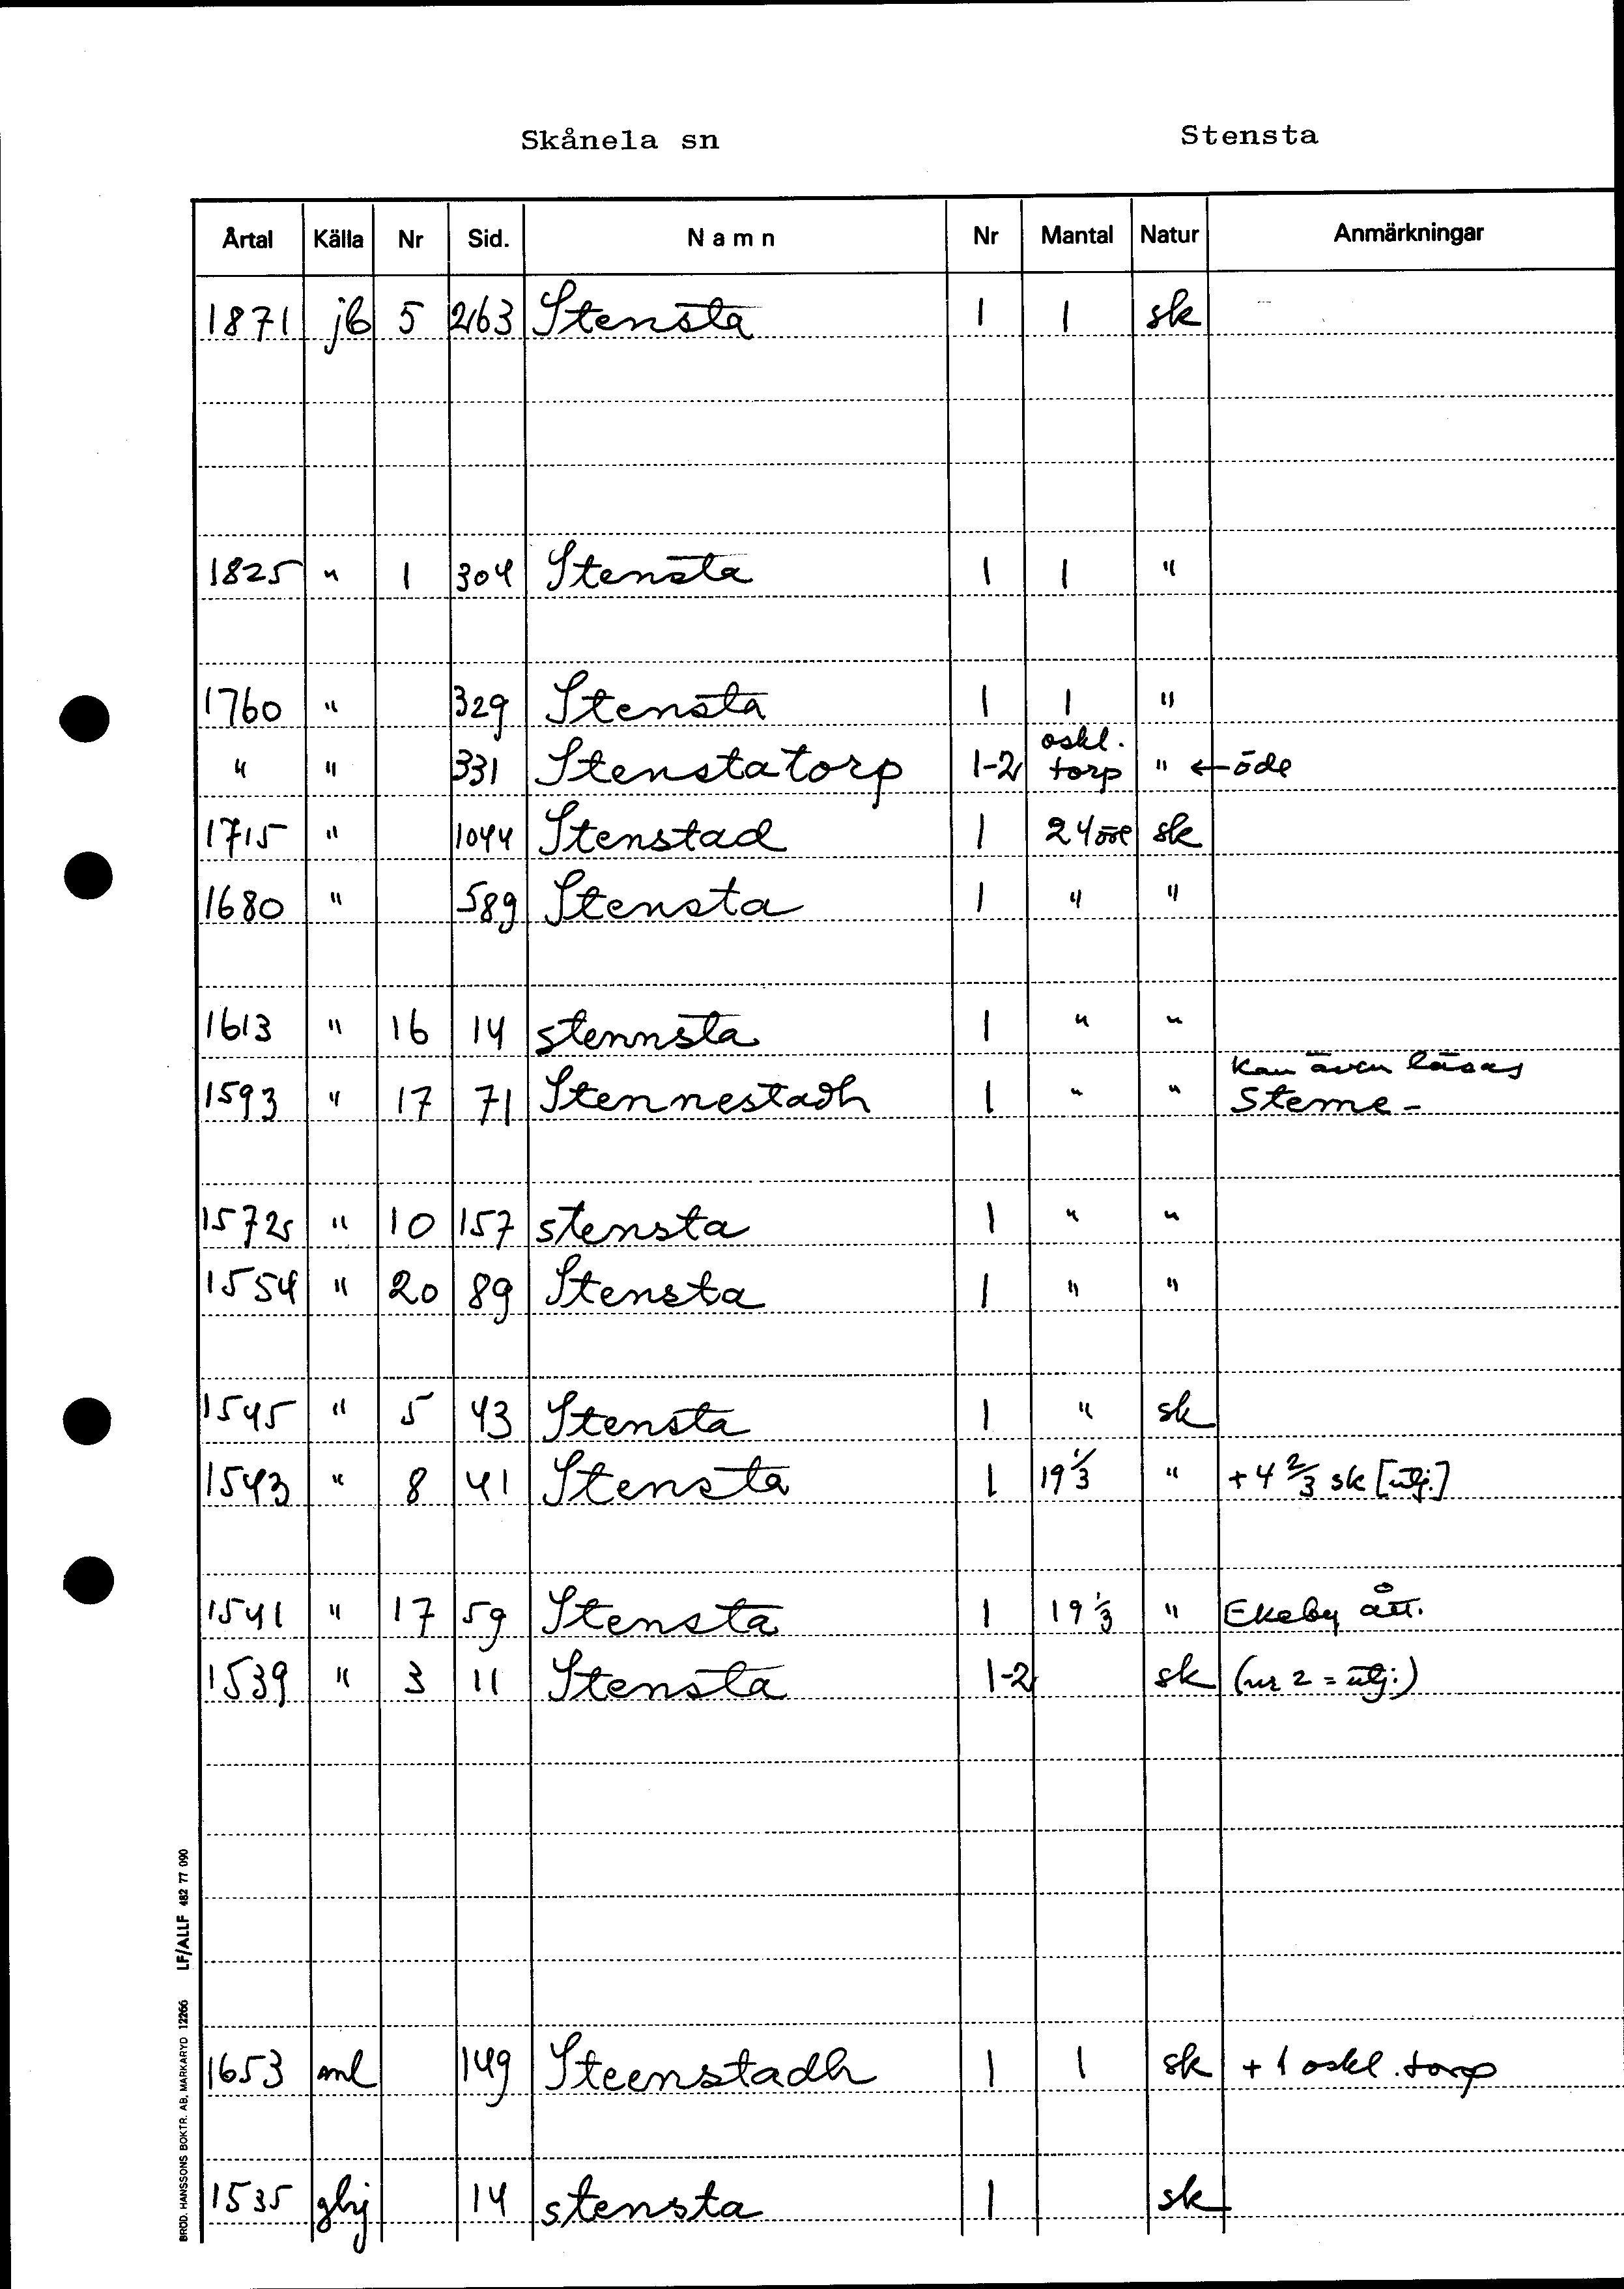 Skånela sn Stensta
Årtal Källa Nr Sid. Namn Nr Mantal Natur Anmärkningar
1871 jb 5 263 Stensta 1 1 sk
1825 " 1 304 Stensta 1 1 "
1760 " 329 Stensta 1 1 "
" " 331 Stenstatorp 1-2 oskl. torp " ← öde
1715 " 1044 Stenstad 1 24 öre sk
1680 " 589 Stensta 1 " "
1613 " 16 14 stennsta 1 " "
1593 " 17 71 Stennestadh 1 " " kan även läsas
Steme-
1572 " 10 157 stensta 1 " "
1554 " 20 89 Stensta 1 " "
1545 " 5 43 Stensta 1 " sk
1543 " 8 41 Stensta 1 19 1/3 " +4 2/3 sk [utj.]
1541 " 17 59 Stensta 1 19 1/3 " Ekeby ått.
1539 " 3 11 Stensta 1-2 sk (nr 2 = utj.)
1653 ml 149 Steenstadh 1 1 sk + 1 oskl. torp
1535 ghj 14 stensta 1 sk
BROD. HANSSONS BOKTR. AB, MARKARYD 12266 LF/ALLF 482 77 090